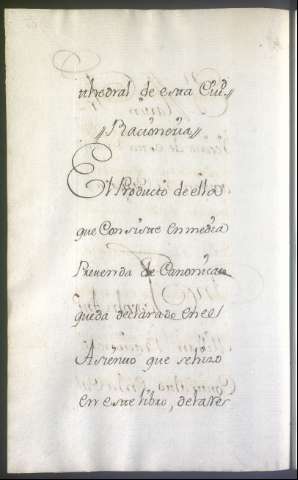 thedral de esta Ciud.//
//Racioneria//
El Producto de ella
que Consiste en media
Prevenda de Canonicato
queda declarado en el
Asiento que se hizo
en este libro, de las res